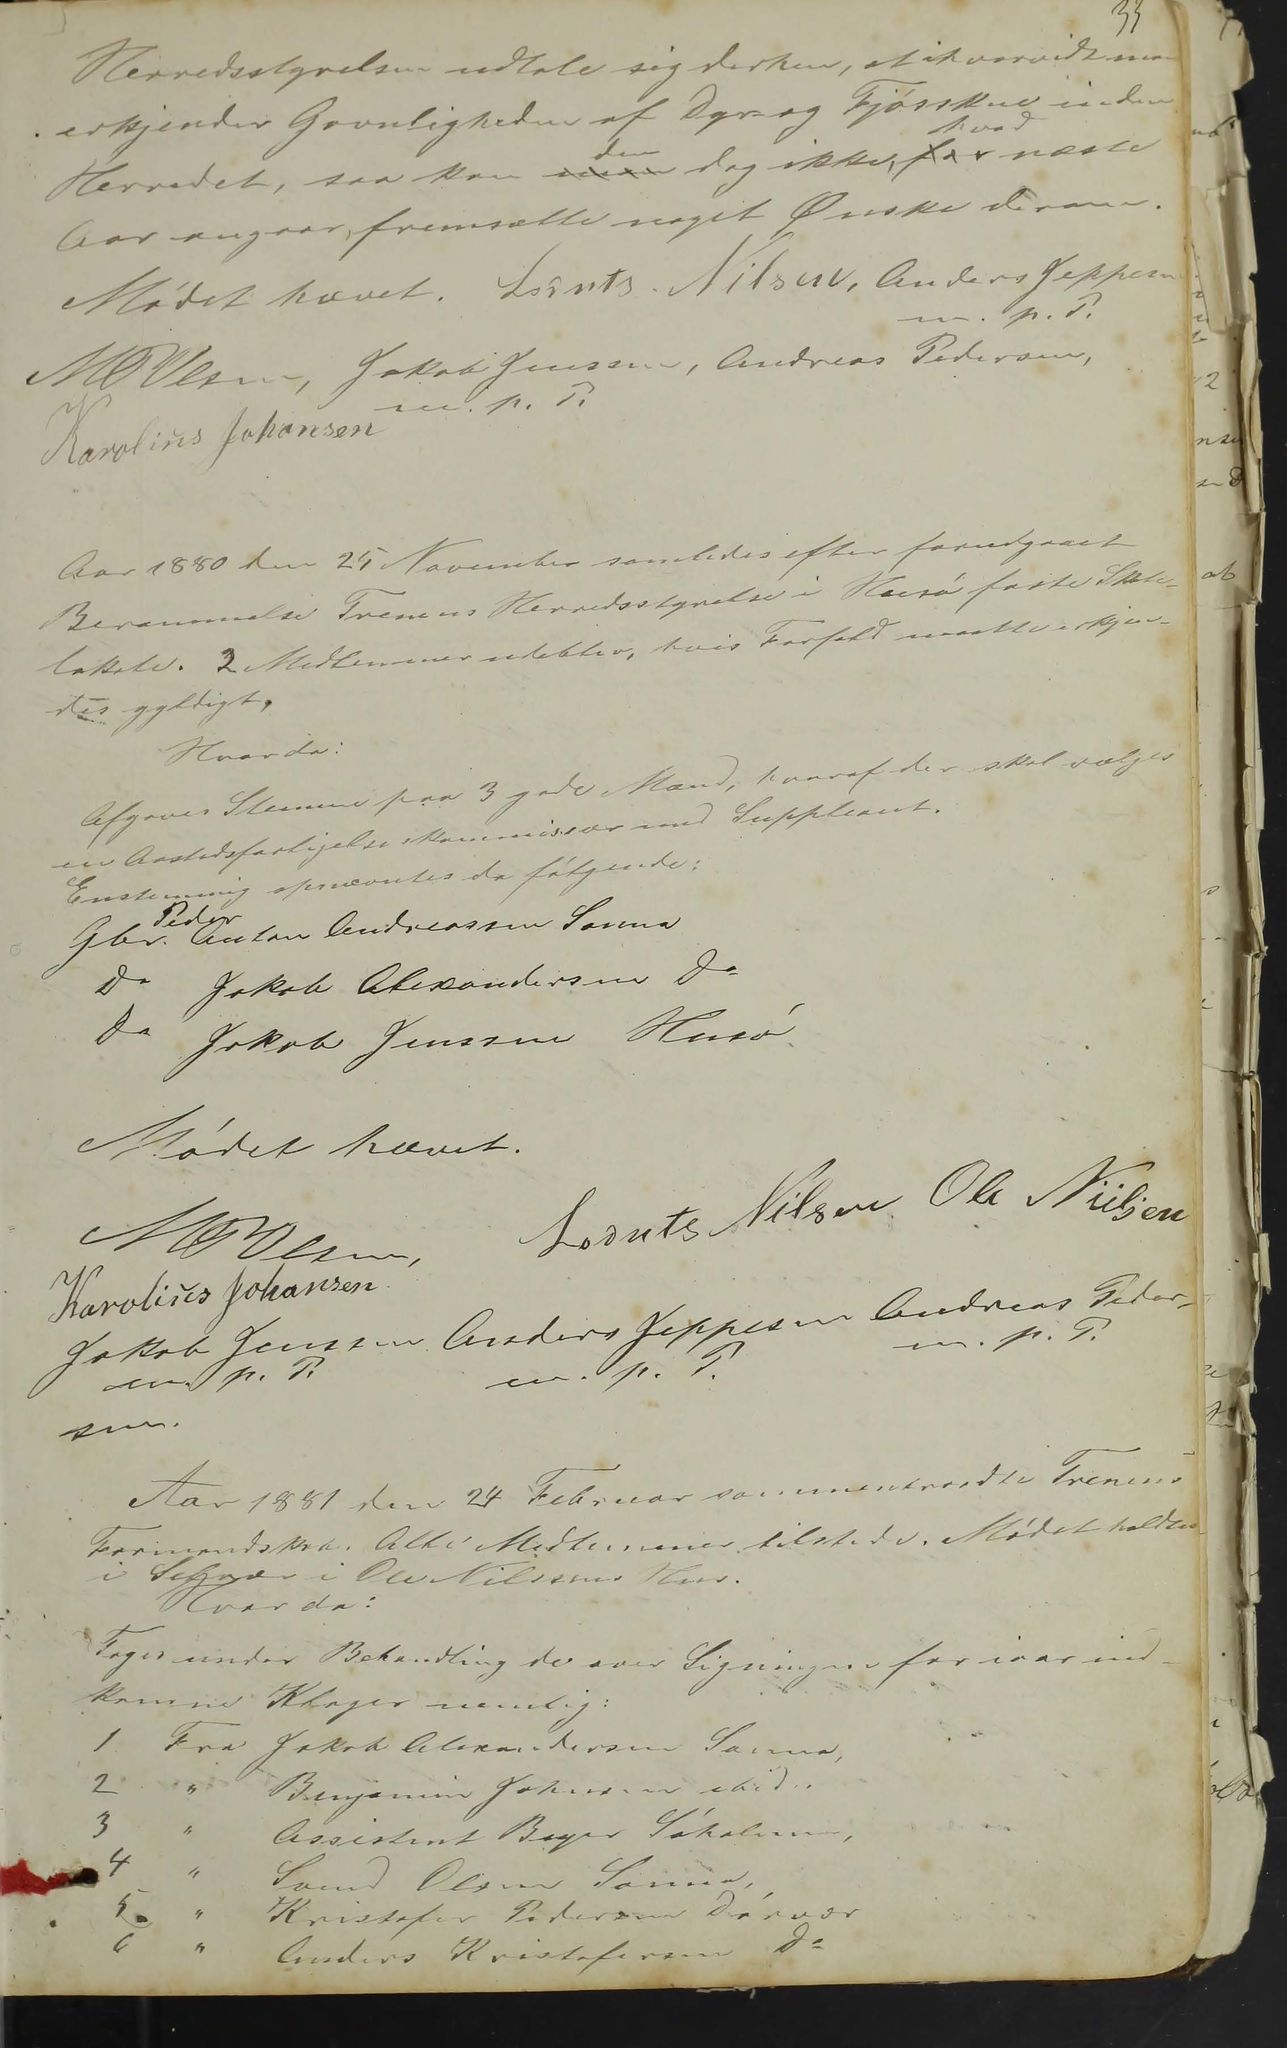 33
Herredsstyrelsen udtale sig derhen, at ihvorvidt man
erkjender Gavnligheden af Dyr- og Fjøsskue inden
Herredet, saa kan den dog ikke, hvad næste
Aar angaar, fremsætte noget Ønske derom.
Mødet hævet. Lorents Nilsen, Anders Jeppesen
m. p. P.
M Olsen, Jakob Jenssen, Andreas Pedersen,
m. p. P.
Karolius Johansen
Aar 1880 den 25 November samledes efter forudgaaet
Berammelse Trenens Herredsstyrelse i Husø faste Skole-
lokale. 2 Medlemmer udeblev, hvis Forfald maatte erkjen-
des gyldigt.
Hvor da:
Afgaves Stemme paa 3 gode Mænd, hvoraf der skal vælges
en Aastedsforligelseskommissær med Suppleant.
Enstemmig opnævntes da følgende:
Gbr. Peder Anton Andreassen Sanna
Do Jakob Alexandersen Do
Do Jakob Jenssen Husø
Mødet hævet.
M Olsen, Lorents Nilsen Ole Nilsen
Karolius Johansen
Jakob Jenssen Anders Jeppesen Andreas Peder-
m. p. P. m. p. P. m. p. P.
sen.
Aar 1881 den 24 Februar sammentraadte Trenens
Formandskab. Alle Medlemmer tilstede. Mødet holdtes
i Selvær i Ole Nilssens Hus.
Hvor da:
Toges under Behandling de over Ligningen for iaar ind-
komne Klager nemlig:
1 Fra Jakob Alexandersen Sanna,
2 " Benjamin Johnsen ibid.
3 " Assistent Beyer Søholmen,
4 " Svend Olsen Sanna,
5 " Kristofer Pedersen Dørvær
6 " Anders Kristofersen Do